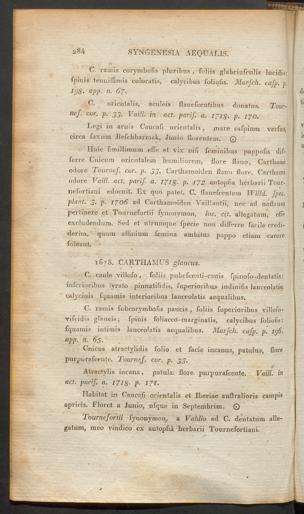 284 SYNGENESIA AEQUALIS.
C. ramis corymbosis pluribus, foliis glabriusculis lucidis
spinis tenuissimis coloratis, calycibus foliosis. Marsch. casp. p.
198. app. n. 67.
C. orientalis, aculeis flavescentibus donatus. Tour-
nef. cor. p. 33. Vaill. in act. paris. a. 1718. p. 170.
Legi in arvis Caucasi orientalis, mare caspium versus
circa saxum Beschbarmak, Junio florentem. ☉
Huic simillimum esse et vix nisi seminibus papposis dif-
ferre Cnicum orientalem humiliorem, flore flavo, Carthami
odore Tournef. cor. p. 33. Carthamoiden flavo flore, Carthami
odore Vaill. act. paris. a. 1718. p. 172 autopsia herbarii Tour-
nefortiani edocuit. Ex quo patet, C. flavescentem Willd. spec.
plant. 3. p. 1706 ad Carthamoiden Vaillantii, nec ad nostrum
pertinere et Tournefortii synonymon, loc. cit. allegatum, esse
excludendum. Sed et utrumque specie non differre facile credi-
derim, quum affinium semina ambitus pappo etiam carere
soleant.
1678. CARTHAMUS glaucus.
C. caule villoso, foliis pubescenti-canis spinoso-dentatis:
inferioribus lyrato pinnatifidis, superioribus indivisis lanceolatis
calycinis squamis interioribus lanceolatis aequalibus.
C. ramis subcorymbosis paucis, foliis superioribus villoso-
viscidis glaucis; spinis foliaceo-marginatis, calycibus foliosis:
squamis intimis lanceolatis aequalibus. Marsch. casp. p. 196.
app. n. 65.
Cnicus atractylidis folio et facie incanus, patulus, flore
purpurascente. Tournef. cor. p. 33.
Atractylis incana, patula: flore purpurascente. Vaill. in
act. paris. a. 1718. p. 171.
Habitat in Caucasi orientalis et Iberiae australioris campis
apricis. Floret a Junio, usque in Septembrim. ☉
Tournefortii synonymon, a Vahlio ad C. dentatum alle-
gatum, huc vindico ex autopsia herbarii Tournefortiani.